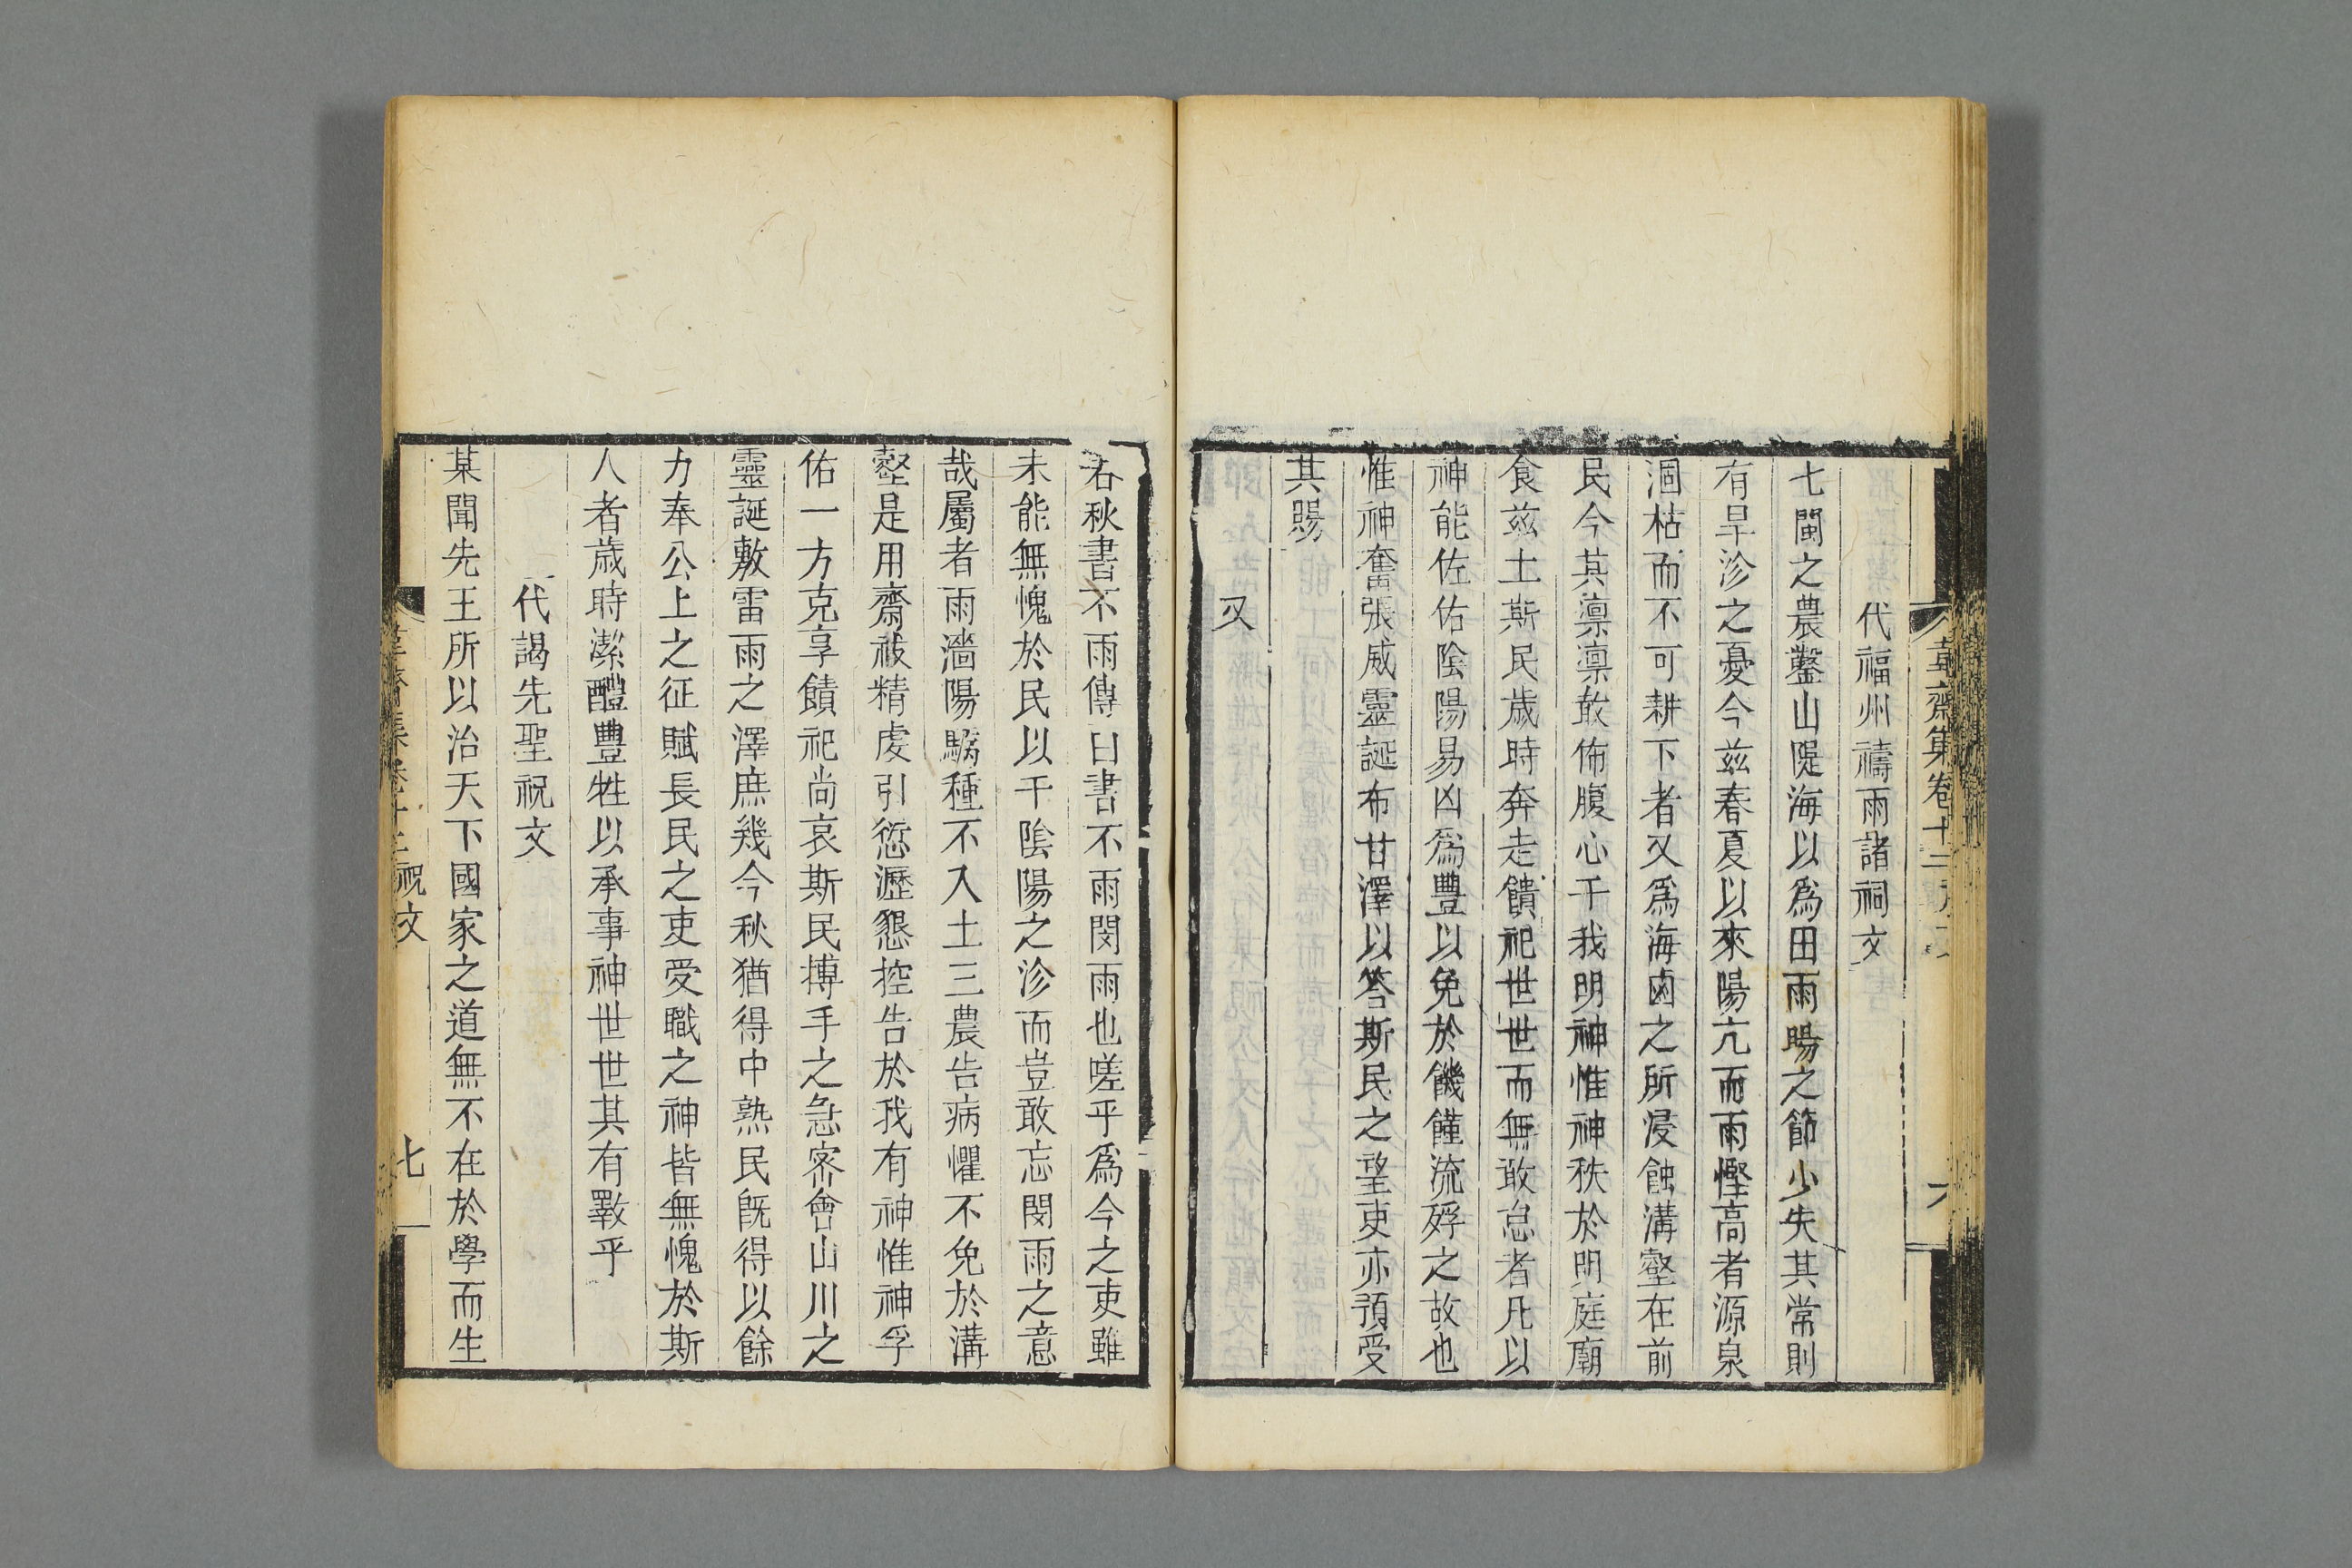 韋齋集卷十二
六
代福州禱雨諸祠文
七閩之農鑿山隄海以爲田雨暘之節少失其常則
有旱沴之憂今兹春夏以來陽亢而雨慳高者源泉
涸枯而不可耕下者又爲海鹵之所浸蝕溝壑在前
民今其凛凛敢佈腹心于我明神惟神秩於明庭廟
食兹土斯民歲時奔走饋祀世世而無敢怠者凡以
神能佐佑陰陽易凶爲豐以免於饑饉流殍之故也
惟神奮張威靈誕布甘澤以答斯民之望吏亦預受
其賜
又
春秋書不雨傳曰書不雨閔雨也嗟乎爲今之吏雖
未能無愧於民以干陰陽之沴而豈敢忘閔雨之意
哉屬者雨濇陽驕種不入土三農告病懼不免於溝
壑是用齋祓精虔引愆瀝懇控告於我有神惟神孚
佑一方克享饋祀尚哀斯民摶手之急宻會山川之
靈誕敷雷雨之澤庶幾今秋猶得中熟民旣得以餘
力奉公上之征賦長民之吏受職之神皆無愧於斯
人者歲時潔醴豐牲以承事神世世其有斁乎
代謁先聖祝文
某聞先王所以治天下國家之道無不在於學而生
韋齋集卷十二 祝文
七